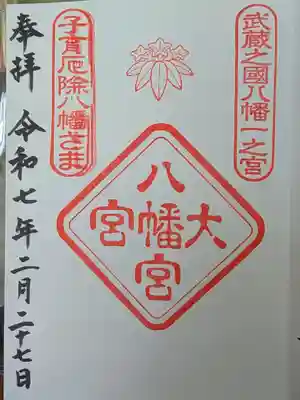 武蔵之國八幡一之宮
大宮
八幡宮
子育厄除八幡さま
奉拝 令和七年二月二十七日